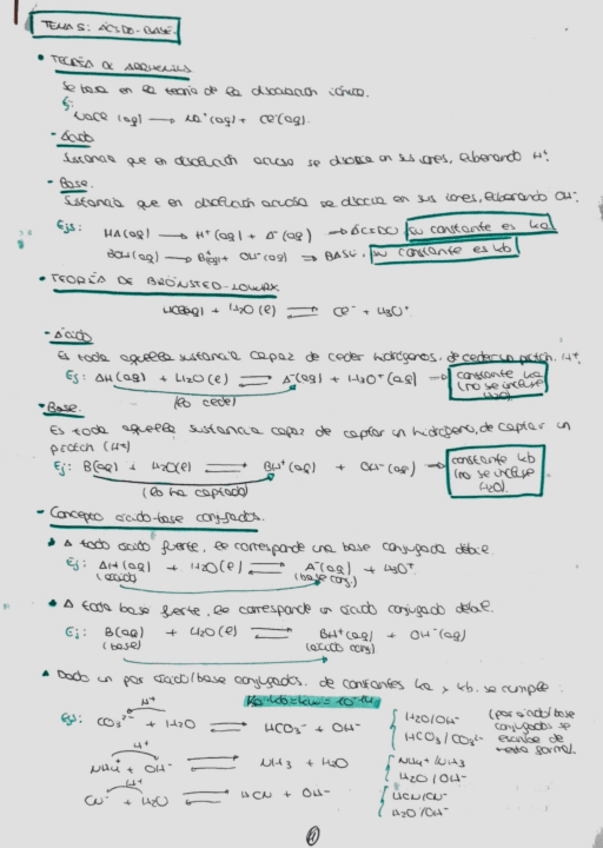 TEMA 5: ÁCIDO-BASE.
• TEORÍA DE ARRHENIUS.
Se basa en la teoría de la disociación iónica.
Ej:
NaCl (aq) → Na⁺(aq) + Cl⁻(aq).
- Ácido
Sustancia que en disolución acuosa se disocia en sus iones, liberando H⁺.
- Base.
Sustancia que en disolución acuosa se disocia en sus iones, liberando OH⁻.
Ejs: HA(aq) → H⁺(aq) + A⁻(aq) → ÁCIDO, su constante es ka
BOH(aq) → B⁺(aq) + OH⁻(aq) ⇒ BASE, su constante es kb
• TEORÍA DE BRÖNSTED-LOWRY.
HCl(aq) + H₂O(l) ⇌ Cl⁻ + H₃O⁺.
- Ácido
Es toda aquella sustancia capaz de ceder hidrógenos, de ceder un protón, H⁺.
Ej: AH(aq) + H₂O(l) ⇌ A⁻(aq) + H₃O⁺(aq) → constante ka (no se incluye H₂O)
(lo cede)
- Base.
Es toda aquella sustancia capaz de captar un hidrógeno, de captar un
protón (H⁺)
Ej: B(aq) + H₂O(l) ⇌ BH⁺(aq) + OH⁻(aq) → constante kb (no se incluye H₂O).
(lo ha captado)
- Concepto ácido-base conjugados.
• A todo ácido fuerte, le corresponde una base conjugada débil.
Ej: AH(aq) + H₂O(l) ⇌ A⁻(aq) + H₃O⁺
(ácido) (base conj.)
• A toda base fuerte, le corresponde un ácido conjugado débil.
Ej: B(aq) + H₂O(l) ⇌ BH⁺(aq) + OH⁻(aq)
(base) (ácido conj)
• Dado un par ácido/base conjugados, de constantes ka y kb, se cumple:
Ka·kb=kw=10⁻¹⁴
H⁺
Ejs: CO₃²⁻ + H₂O ⇌ HCO₃⁻ + OH⁻ { H₂O/OH⁻
HCO₃⁻/CO₃²⁻
(par ácido/base
conjugados se
escribe de
esta forma).
H⁺
NH₄⁺ + OH⁻ ⇌ NH₃ + H₂O { NH₄⁺/NH₃
H₂O/OH⁻
H⁺
CN⁻ + H₂O ⇌ HCN + OH⁻ { HCN/CN⁻
H₂O/OH⁻